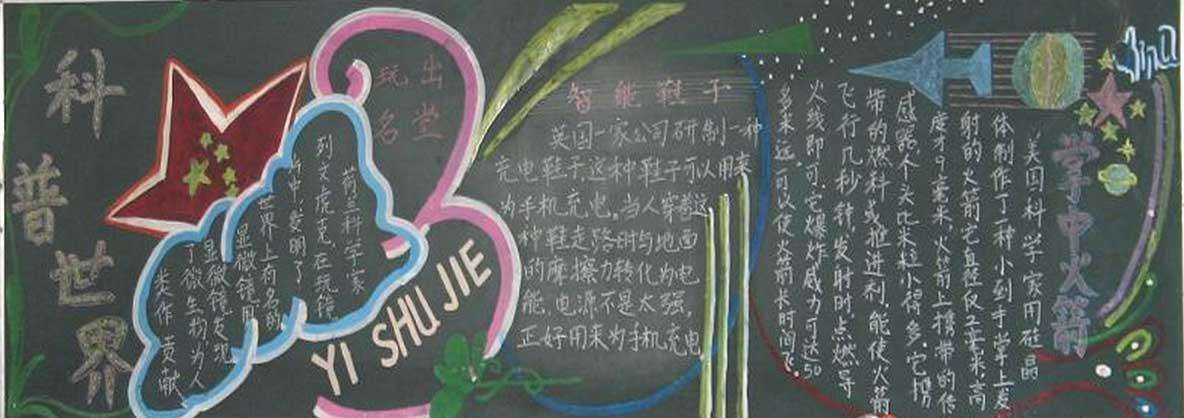 科普世界
玩出
名堂
荷兰科学家
列文虎克在玩镜
片中,发明了
世界上有名的
显微镜,用
显微镜发现
了微生物为人
类作贡献
YI SHU JIE
智能鞋子
英国一家公司研制一种
充电鞋子,这种鞋子可以用来
为手机充电。当人穿着这
种鞋走路时与地面
的摩擦力转化为电
能,电源不是太强,
正好用来为手机充电
掌中火箭
美国科学家用硅晶
体制作了一种小到手掌上发
射的火箭它直径仅2毫米高
度才9毫米,火箭上携带的传
感器个头比米粒小得多。它携
带的燃料或推进剂,能使火箭
飞行几秒钟,发射时点燃导
火线即可,它爆炸威力可达50
多米远,可以使火箭长时间飞。